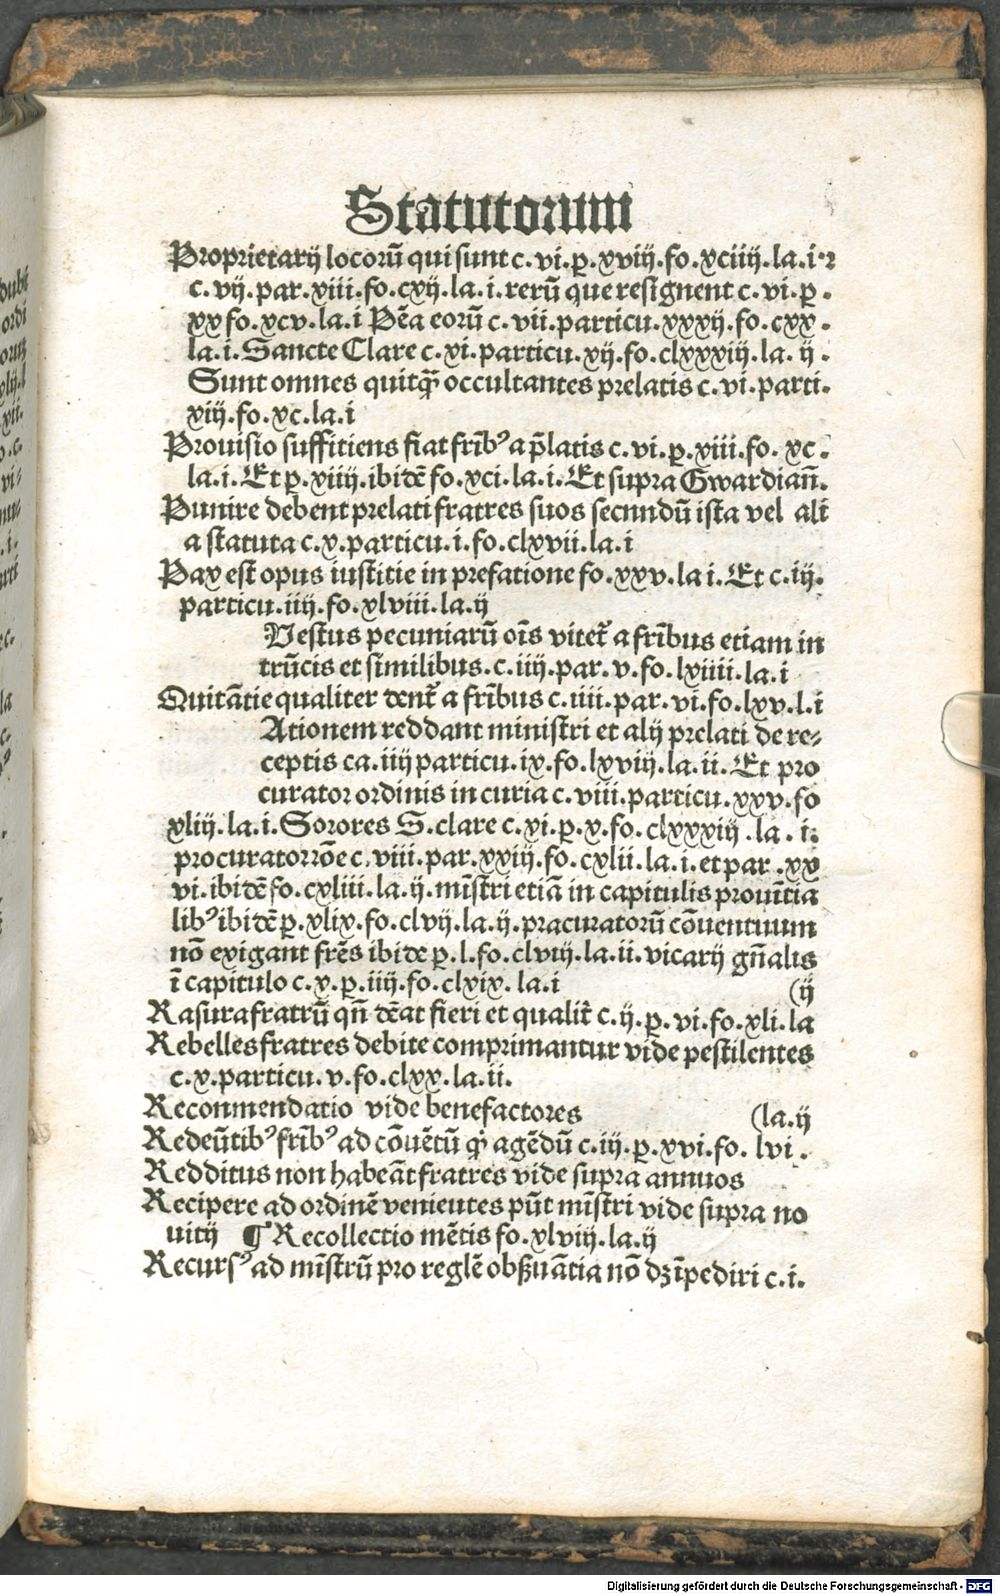 Statutorum
Proprietarij locorū qui sunt c. vi. p. xviij. fo. xciiij. la. i. ⁊
c. vij. par. xiii. fo. cxij. la. i. rerū que resignent c. vi. p.
xx fo. xcv. la. i Pēa eorū c. vii. particu. xxxij. fo. cxx.
la. i. Sancte Clare c. xi. particu. xij. fo. clxxxiij. la. ij.
Sunt omnes quitq̄ occultantes prelatis c. vi. parti.
xiij. fo. xc. la. i
Prouisio suffitiens fiat frībꝰ a p̄latis c. vi. p. xiii. fo. xc.
la. i. Et p. xiiij. ibidē fo. xci. la. i. Et supra Gwardian̄.
Punire debent prelati fratres suos secundū ista vel alī
a statuta c. x. particu. i. fo. clxvii. la. i
Pax est opus iustitie in prefatione fo. xxv. la i. Et c. iij.
particu. iij. fo. xlviii. la. ij
Vestus pecuniarū oīs vitet᷑ a frībus etiam in
trūcis et similibus. c. iiij. par. v. fo. lxiiii. la. i
Quitātie qualiter dent᷑ a frībus c. iiii. par. vi. fo. lxv. l. i
Ationem reddant ministri et alij prelati de re-
ceptis ca. iiij particu. ix. fo. lxviij. la. ii. Et pro
curator ordinis in curia c. viii. particu. xxv. fo
xliij. la. i. Sorores S. clare c. xi. p. x. fo. clxxxiij. la. i.
procurator rōe c. viii. par. xxiij. fo. cxlii. la. i. et par. xx
vi. ibidē fo. cxliii. la. ij. mīstri etiā in capitulis prouītia
libꝰ ibidē p. xlix. fo. clvij. la. ij. pracuratorū cōuentuum
nō exigant frēs ibidē p. l. fo. clviij. la. ii. vicarij gn̄alis
ī capitulo c. x. p. iiij. fo. clxix. la. i (ij
Rasura fratrū qn̄ dēat fieri et qualit᷑ c. ij. p. vi. fo. xli. la
Rebelles fratres debite comprimantur vide pestilentes
c. x. particu. v. fo. clxx. la. ii.
Reconmendatio vide benefactores (la. ij
Redeūtibꝰ frībꝰ ad cōuētū qͥ agēdū c. iij. p. xvi. fo. lvi.
Redditus non habeāt fratres vide supra annuos
Recipere ad ordinē venientes pn̄t mīstri vide supra no
uitij ¶ Recollectio mētis fo. xlviij. la. ij
Recursꝰ ad mīstrū pro reglē obẜuātia nō dꝫ īpediri c. i.
Digitalisierung gefördert durch die Deutsche Forschungsgemeinschaft - DFG